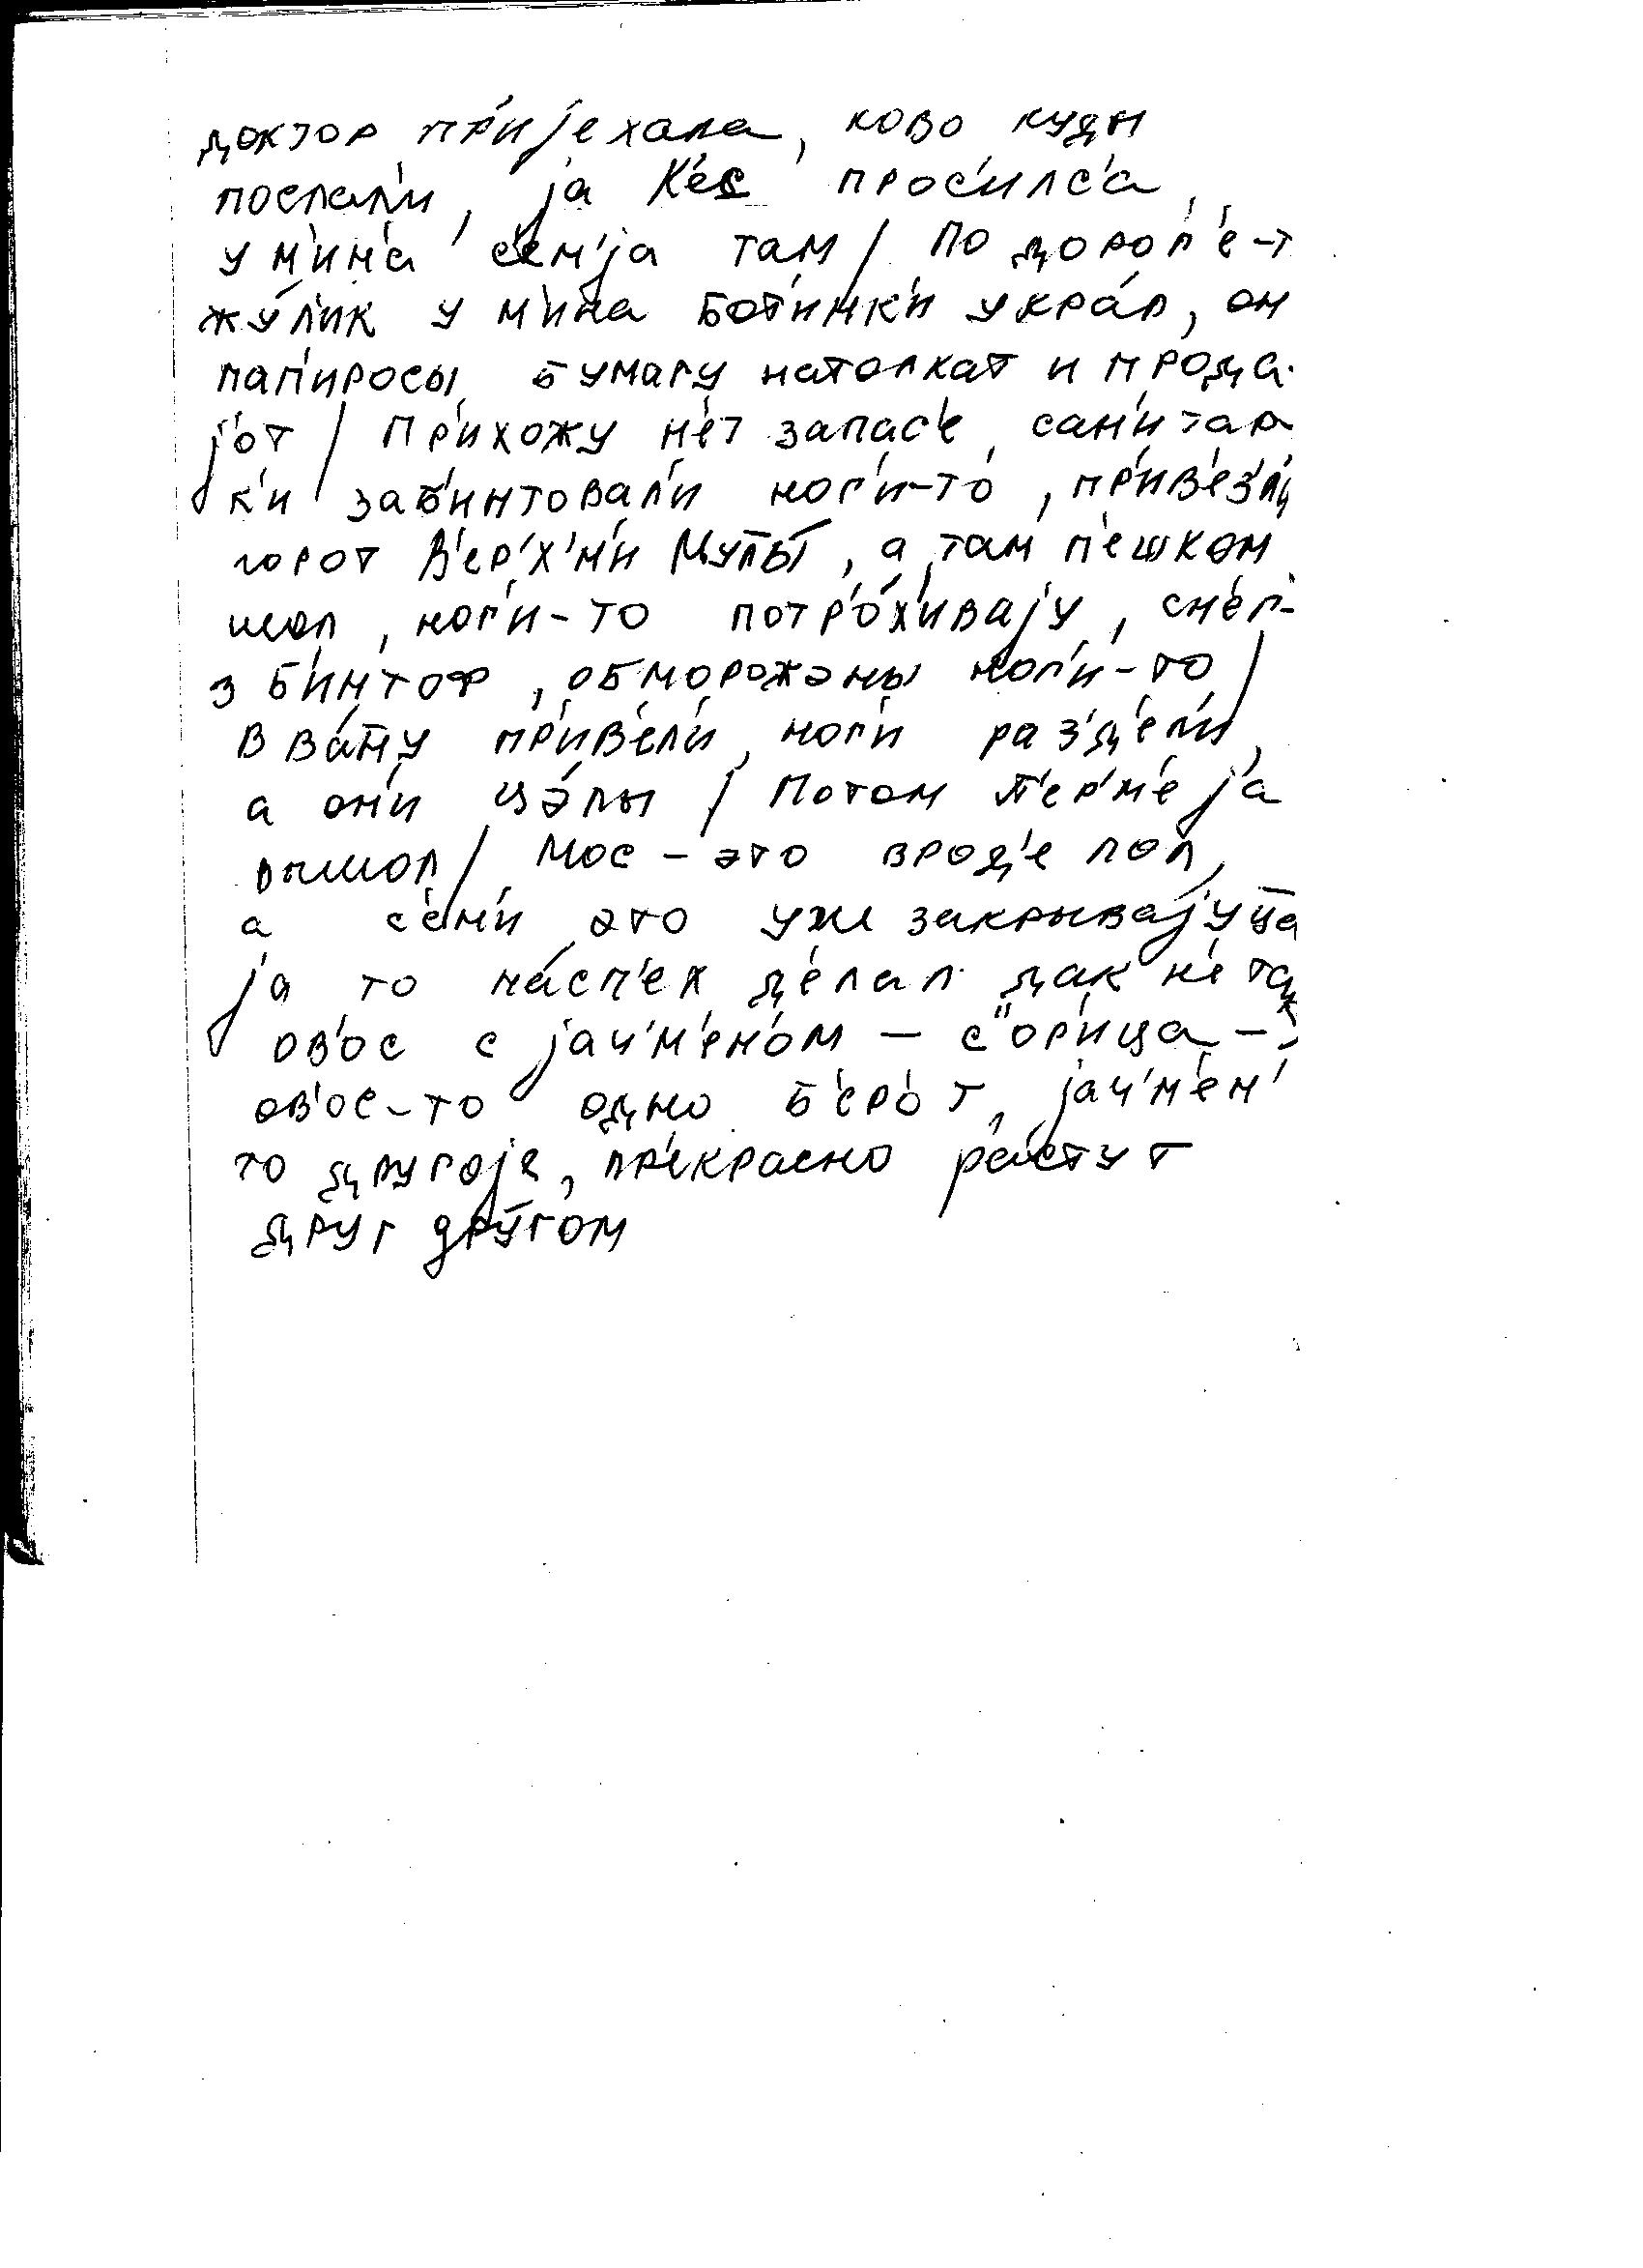 доктор пр'ијехала, ково куды
послал'и, ја К'ес прос'илс'а,
у м'ин'а с'ем'ја там / По дорог'е-т
жу́л'ик у м'ин'а бот'инк'и укра́л, он
пап'иросы бумагу натолкат и прода-
јот / Пр'ихожу н'ет запас'е, сан'итар-
к'и заб'интовал'и ног'и-то, пр'ив'езл'и
горот В'ер'х'н'и Мулы, а там п'ешком
шол, ног'и-то потр'о́х'ивају, сн'ег-
з б'интоф, обморожэны ног'и-то /
в ва́ну пр'ив'ел'и, ног'и раз'д'ел'и,
а он'и цэ́лы / Потом П'ер'м'е ја
вышол / Мос - это врод'е пол,
а с'ен'и это уж закрывајуца
ја то на́сп'ех д'елал дак н'е так
ов'ос с јач'м'ен'ом - с"ор'ица -
ов'ос-то одно б'ер'от, јач'м'ен'
то другоје, пр'екрасно растут
друг дру́гом